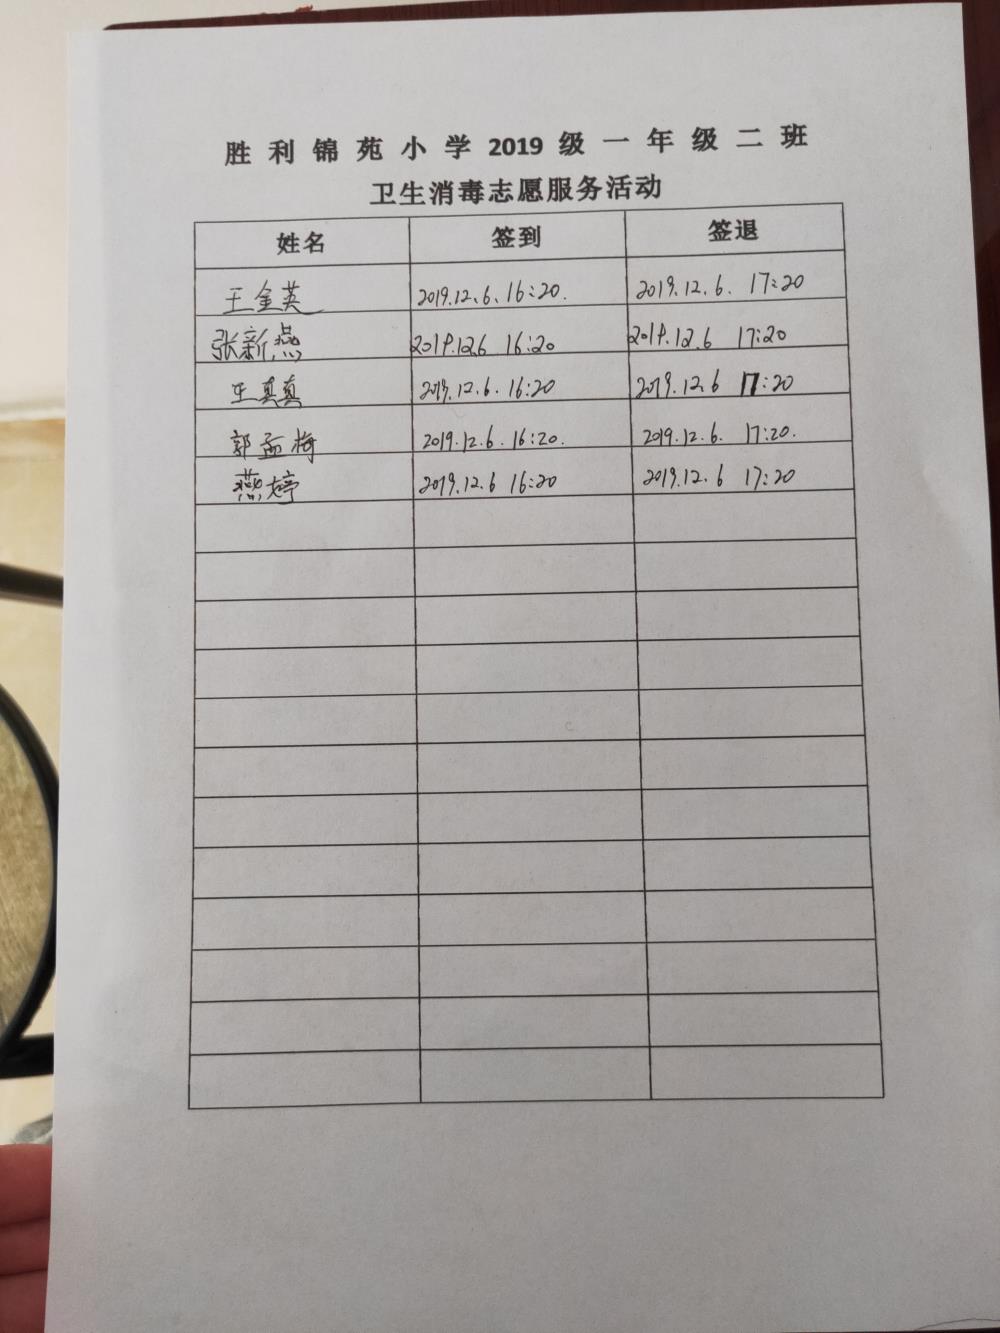 胜利锦苑小学2019级一年级二班
卫生消毒志愿服务活动
姓名 签到 签退
王金英 2019.12.6.16:20. 2019.12.6. 17:20
张新燕 2019.12.6 16:20 2019.12.6 17:20
王真真 2019.12.6.16:20 2019.12.6 17:20
郭孟梅 2019.12.6.16:20. 2019.12.6. 17:20.
燕婷 2019.12.6 16:20 2019.12.6 17:20